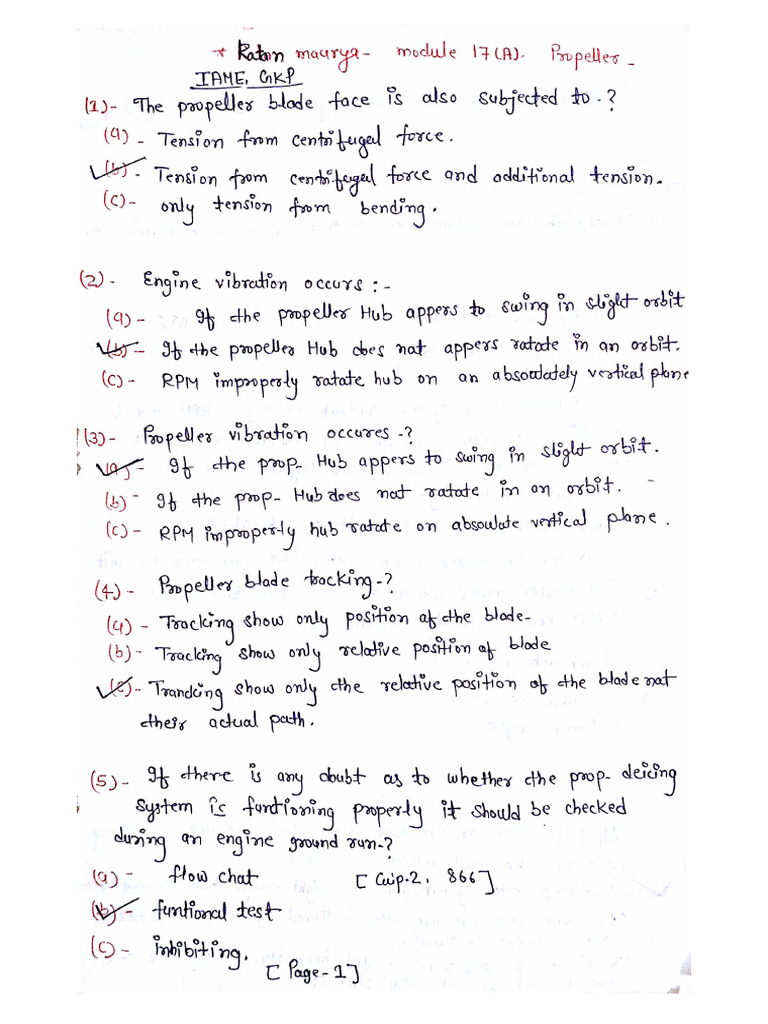 * Ratan maurya- module 17(A). Propeller-
IAME, GKP
(1)- The propeller blade face is also subjected to-?
(a)- Tension from centrifugal force.
(b)- Tension from centrifugal force and additional tension.
(c)- only tension from bending.
(2)- Engine vibration occurs :-
(a)- If the propeller Hub appers to swing in slight orbit
(b)- If the propeller Hub does nat appers ratate in an orbit.
(c)- RPM improperly ratate hub on an absowlately vertical plane
(3)- Propeller vibration occures-?
(a)- If the prop- Hub appers to swing in slight orbit.
(b)- If the prop- Hub does nat ratate in on orbit.
(c)- RPM improperly hub ratate on absowlate vertical plane.
(4)- Propeller blade trocking-?
(a)- Trocking show only position of the blade-
(b)- Tracking show only relative position of blade
(c)- Trancking show only the relative position of the blade nat
their actual path.
(5)- If there is any doubt as to whether the prop- deicing
system is funtioning properly it should be checked
during an engine ground run-?
(a)- flow chat [Caip.2. 866]
(b)- funtional test
(c)- inhibiting.
[Page-1]